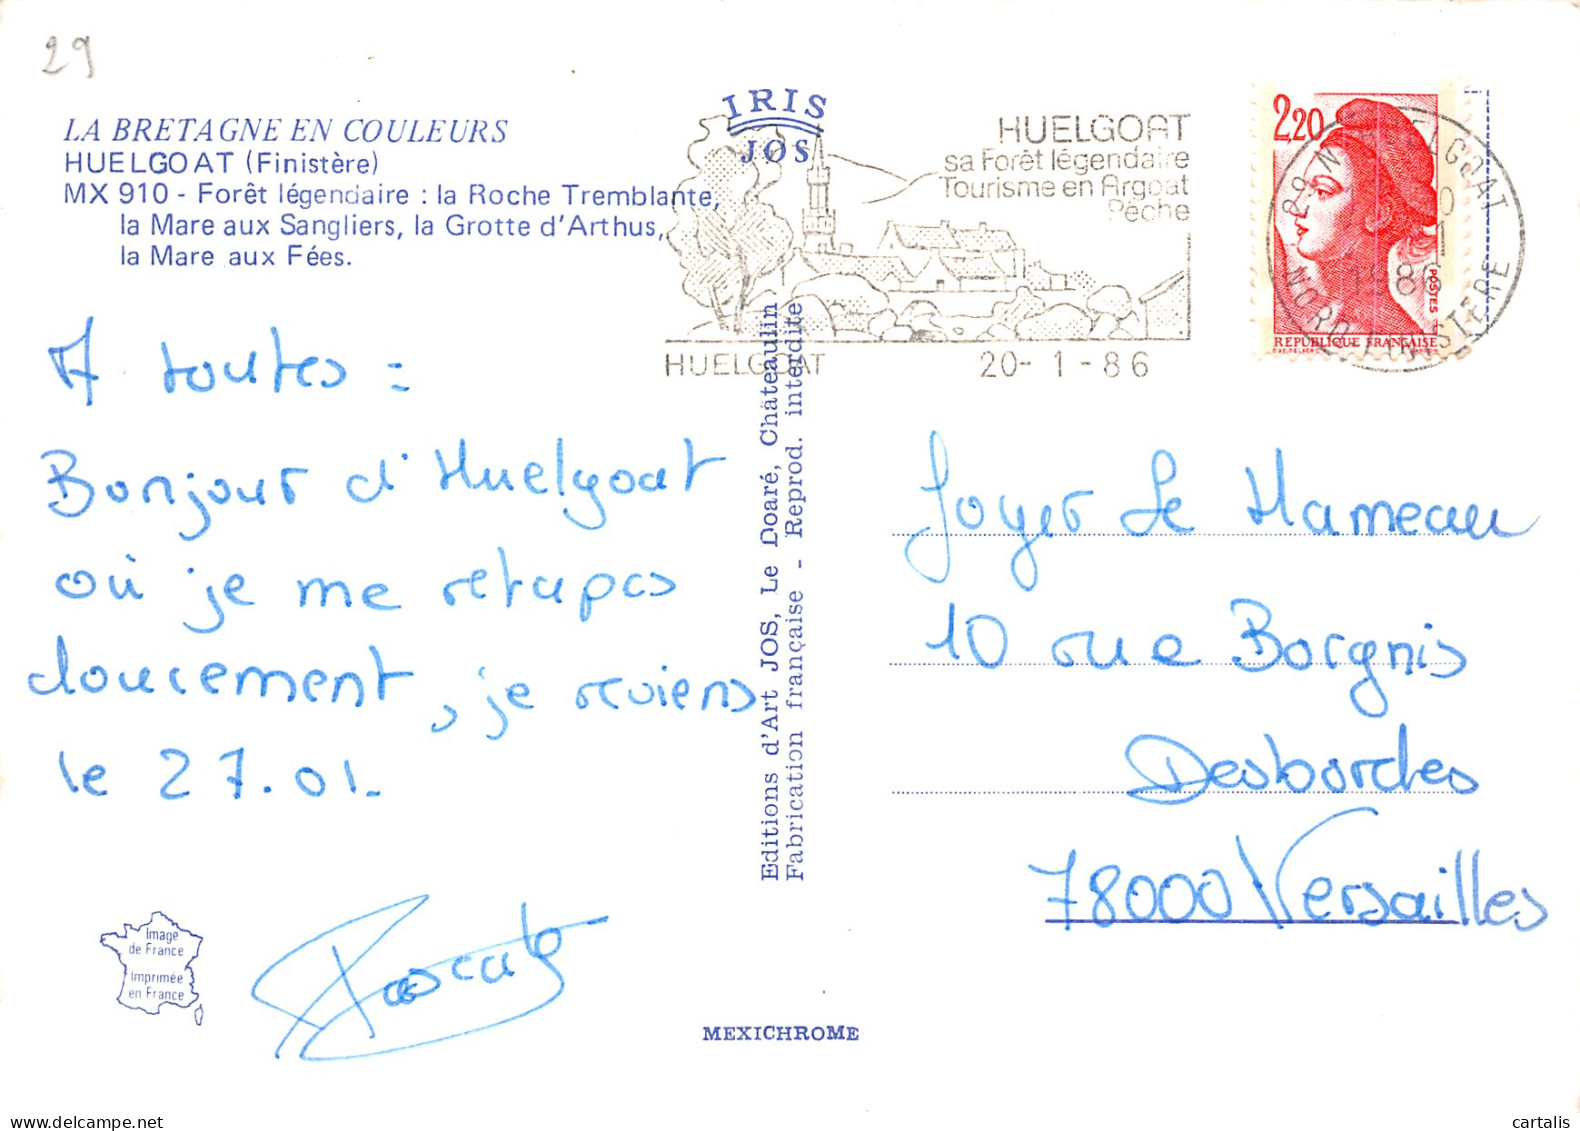 29
LA BRETAGNE EN COULEURS
HUELGOAT (Finistère)
MX 910 - Forêt légendaire : la Roche Tremblante,
la Mare aux Sangliers, la Grotte d'Arthus,
la Mare aux Fées.
IRIS
JOS
HUELGOAT
sa Forêt légendaire
Tourisme en Argoat
Pêche
HUELGOAT 20-1-86
2,20
POSTES
REPUBLIQUE FRANÇAISE
1986
A toutes :
Bonjour d'Huelgoat
où je me retapes
doucement, je reviens
le 27.01.
Editions d'Art JOS, Le Doaré, Châteaulin
Fabrication française - Reprod. interdite
Foyer Le Hameau
10 rue Borgnis
Desbordes
78000 Versailles
Image
de France
Imprimée
en France
Pascale
MEXICHROME
cartalis